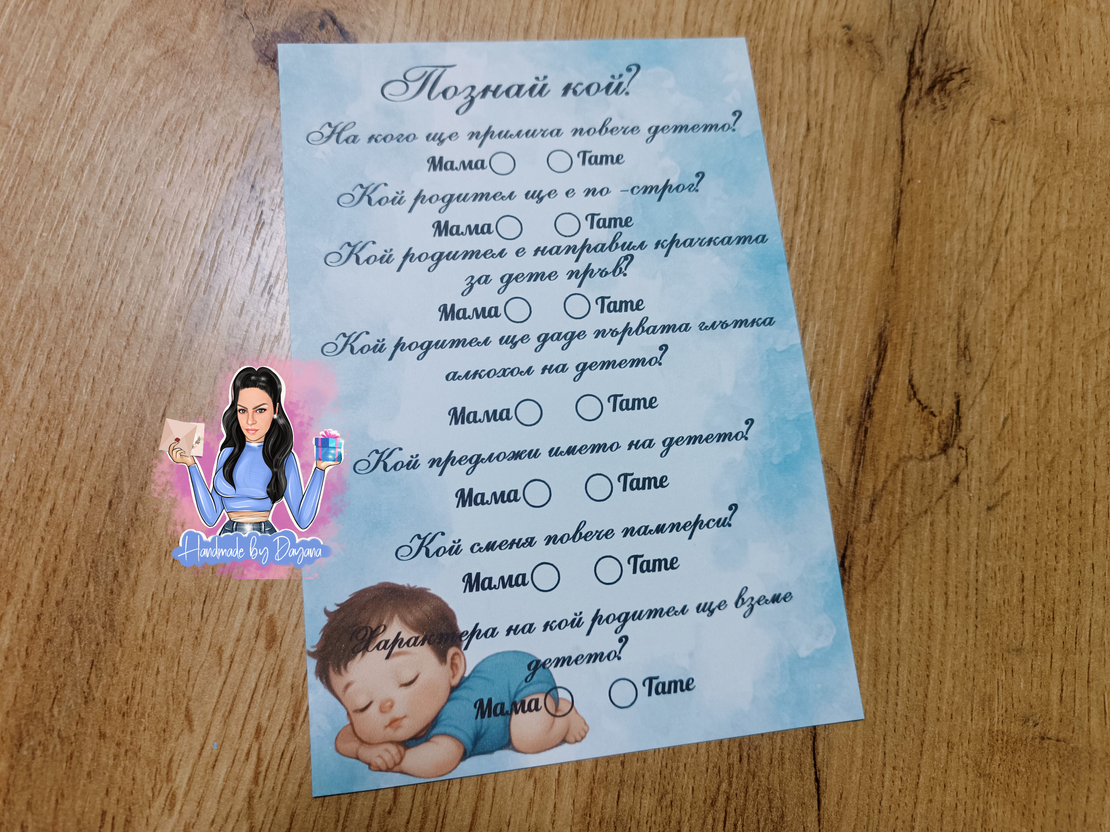 Познай кой?
На кого ще прилича повече детето?
Мама Тате
Кой родител ще е по -строг?
Мама Тате
Кой родител е направил крачката
за дете пръв?
Мама Тате
Кой родител ще даде първата глътка
алкохол на детето?
Мама Тате
Кой предложи името на детето?
Мама Тате
Кой сменя повече памперси?
Мама Тате
Характера на кой родител ще вземе
детето?
Мама Тате
Handmade by Dayana